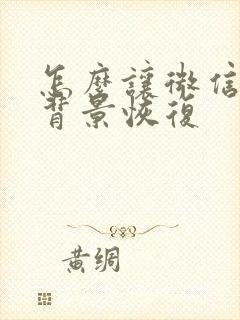 怎麼讓微信
背景恢復
黃綢